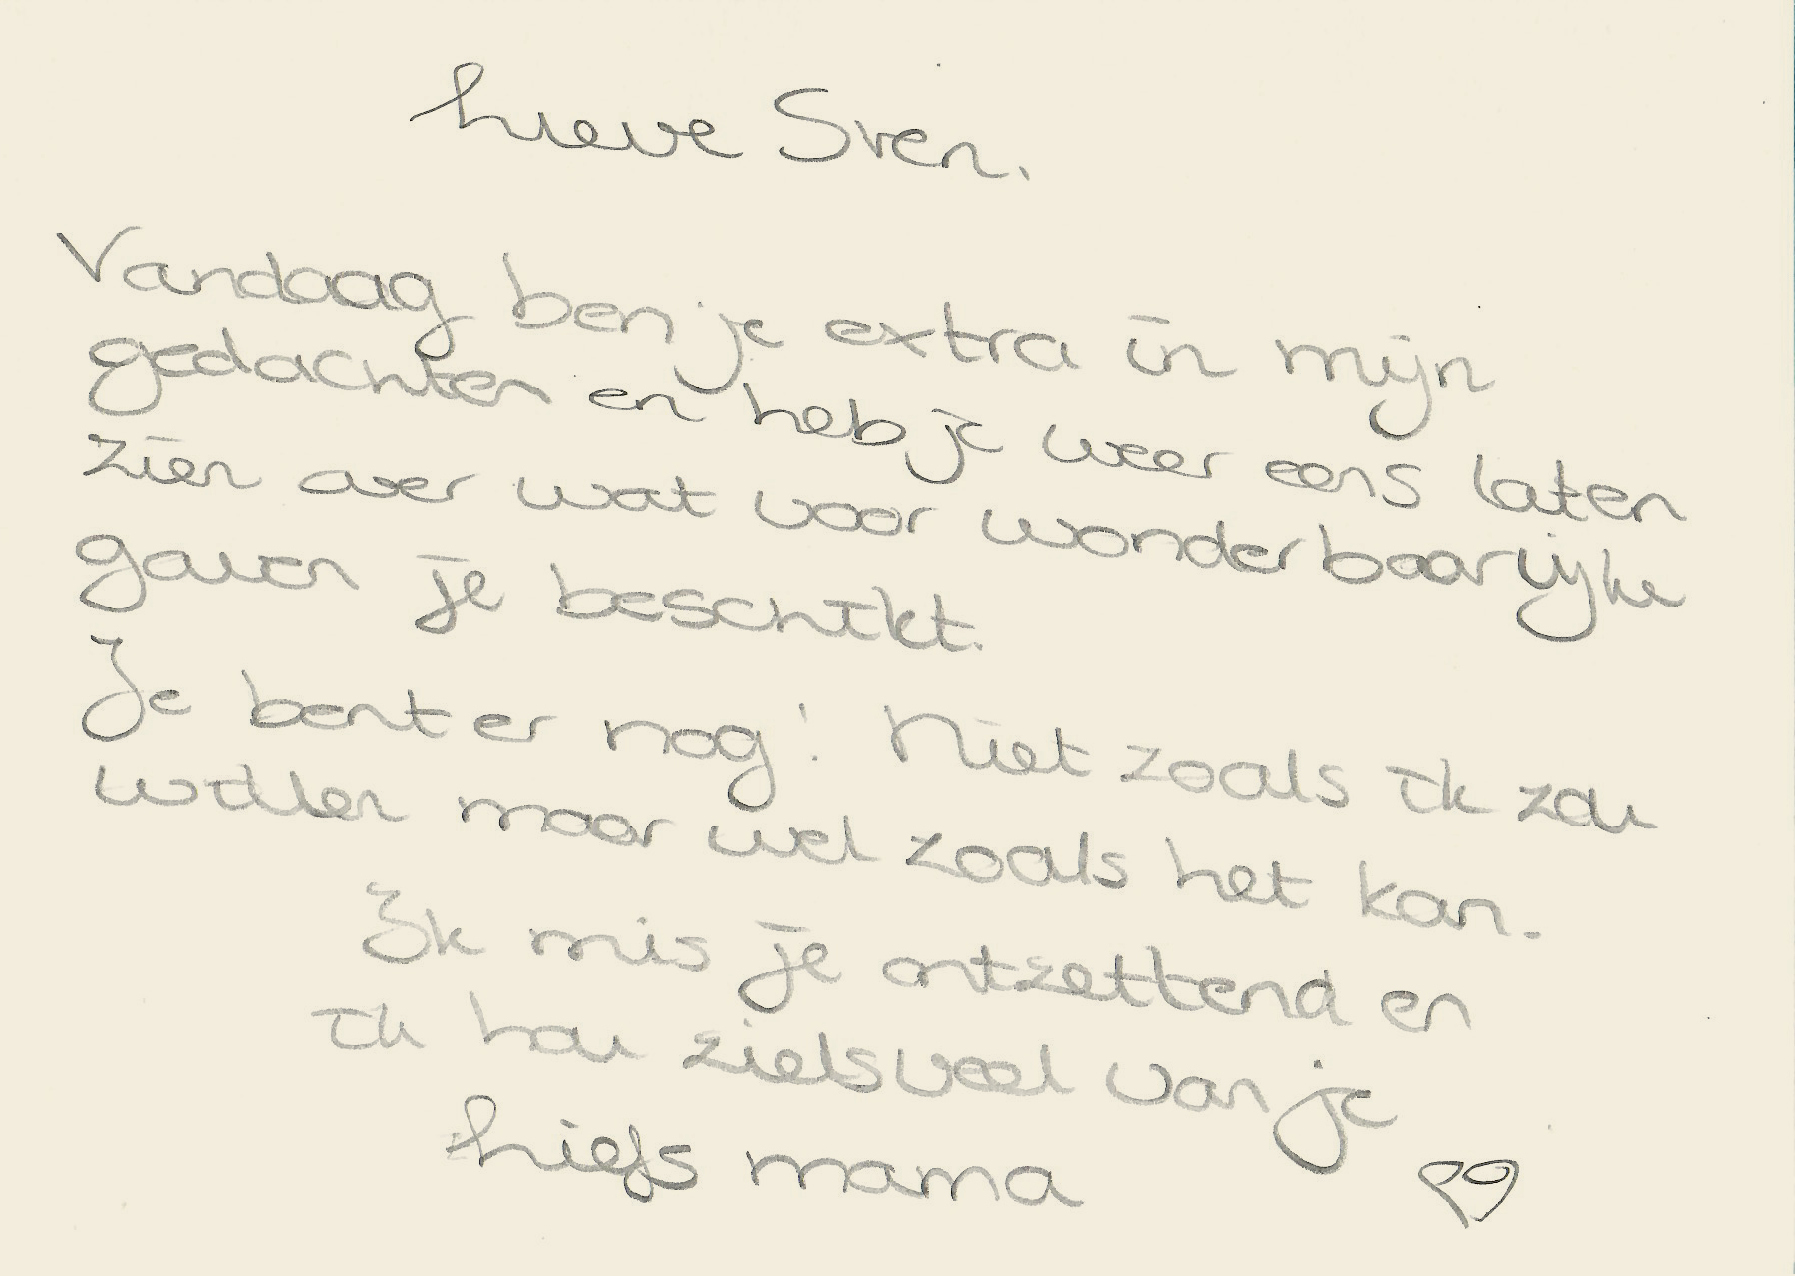 Lieve Sven.
Vandaag ben je extra in mijn
gedachten en heb je weer eens laten
zien over wat voor wonderbaarlijke
gaven je beschikt.
Je bent er nog! Niet zoals ik zou
willen maar wel zoals het kan.
Ik mis je ontzettend en
ik hou zielsveel van je
Liefs mama